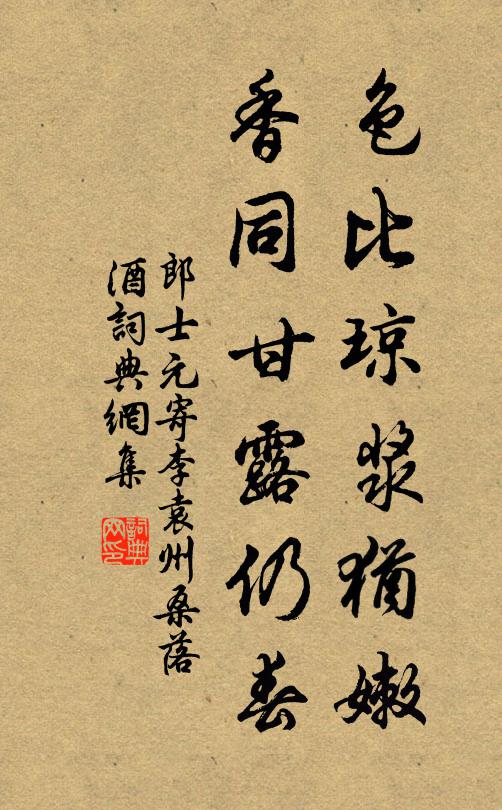 色比琼漿猶嫩
香同甘露仍春
郎士元寄李袁州桑落
酒詞典網集
詞典
网印